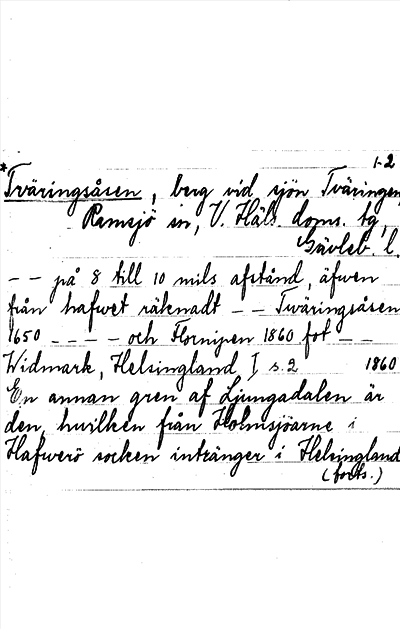 1-2
*Tväringsåsen, berg vid sjön Tväringen,
Ramsjö sn, V. Häls. doms. tg,
Gävleb. l.
-- på 8 till 10 mils afstånd, äfwen
från hafwet räknadt -- Tväringsåsen
1650 ---- och Flornipen 1860 fot --
Widmark, Helsingland I s. 2 1860
En annan gren af Ljungadalen är
den, hwilken från Holmsjöarne i
Hafwerö socken intränger i Helsingland
(forts.)